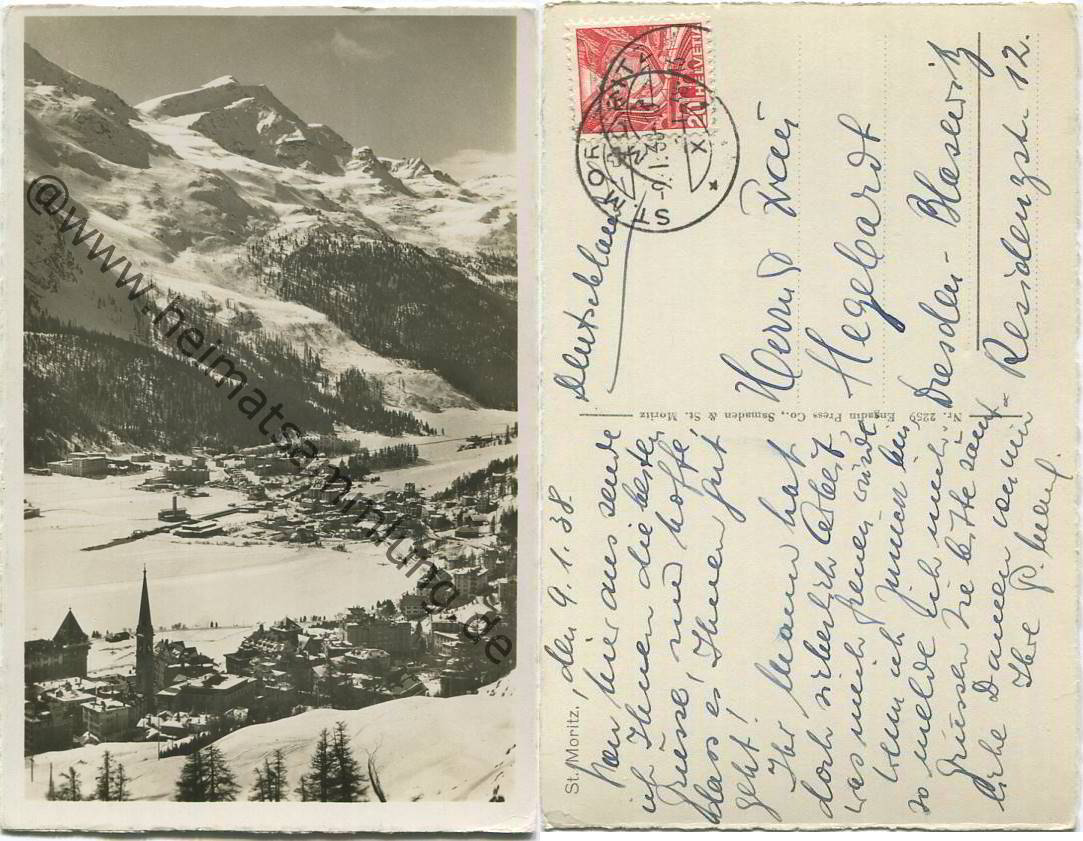 @www.heimatsammlung.de
St. Moritz, den 9.1.38.
Von hier aus sende
ich Ihnen die besten
Grüsse, und hoffe,
dass es Ihnen gut
geht!
Ihr Mann hat
doch sicherlich Arbeit,
was mich freuen würde
Wenn ich
so melde ich mich.
Grüssen Sie bitte sämt-
liche Damen von mir
Ihre
Nr. 2259 Engadin Press Co., Samaden & St. Moritz
HELVETIA
20
ST. MORITZ
-9.I.38
Deutschland
Herrn
Hegebardt
Dresden-Blasewitz
Residenzstr. 12.